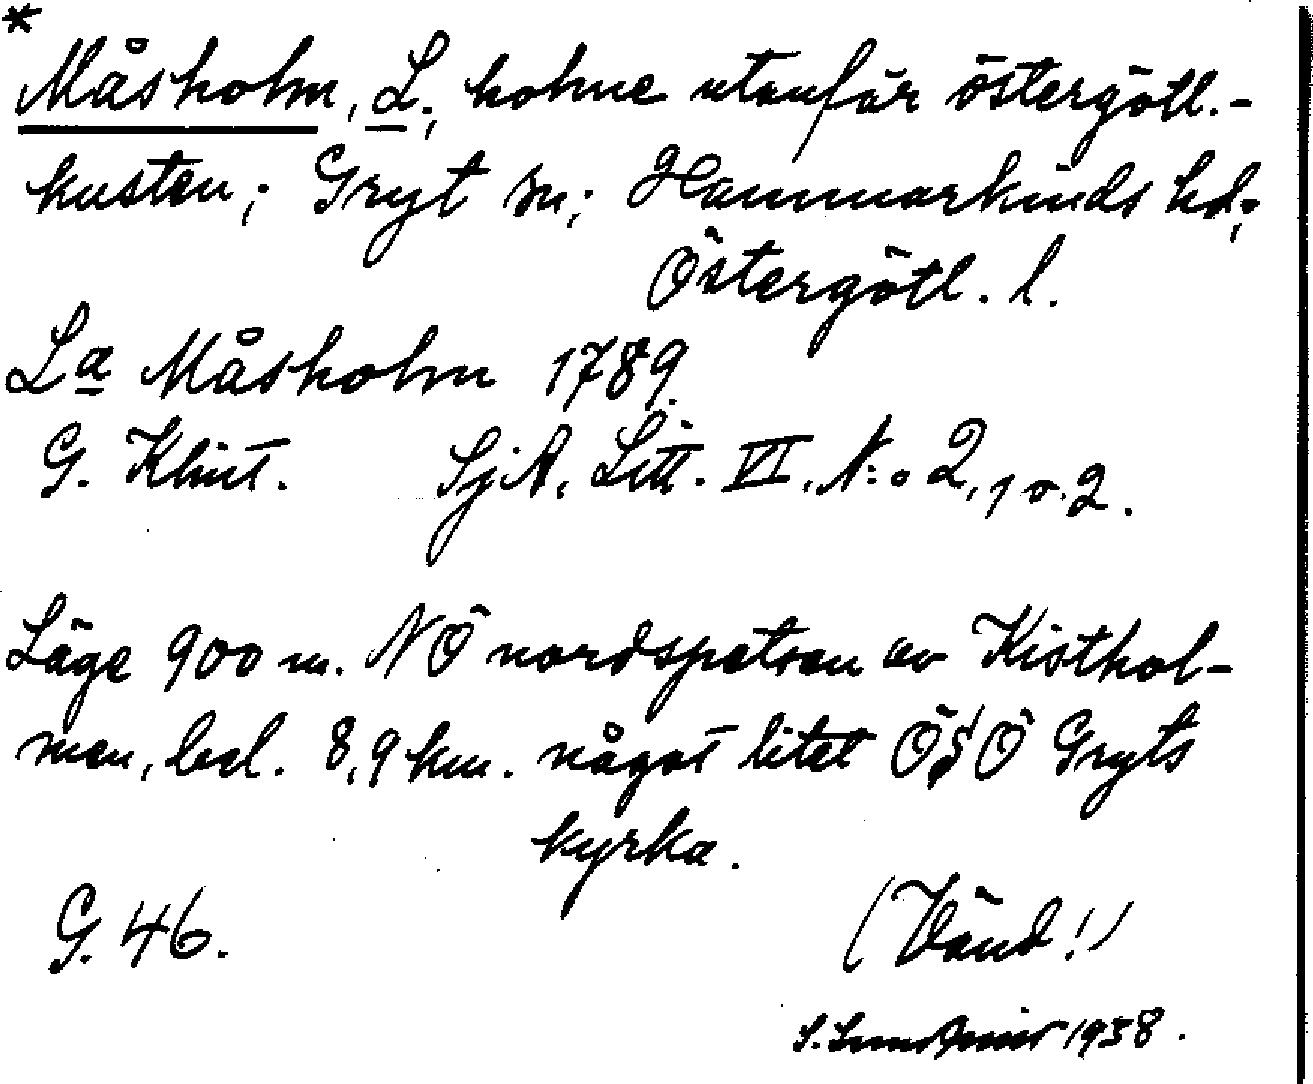 *
Måsholm, L.; holme utanför östergötl.-
kusten; Gryt sn; Hammarkinds hd;
Östergötl. l.
La Måsholm 1789.
G. Klint. SjA, Litt. VI, N:o 2, 1 o. 2.
Läge 900 m. NÖ nordspetsen av Kisthol-
men, bel. 8,9 km. något litet ÖSÖ Gryts
kyrka.
G. 46.
(Vänd!)
S. 1938.